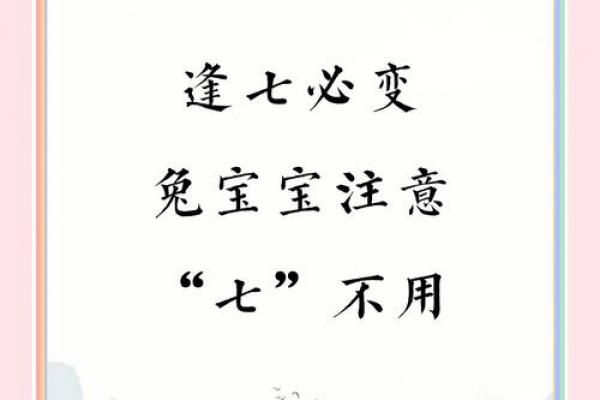 逢七必变
兔宝宝注意
“七”不用